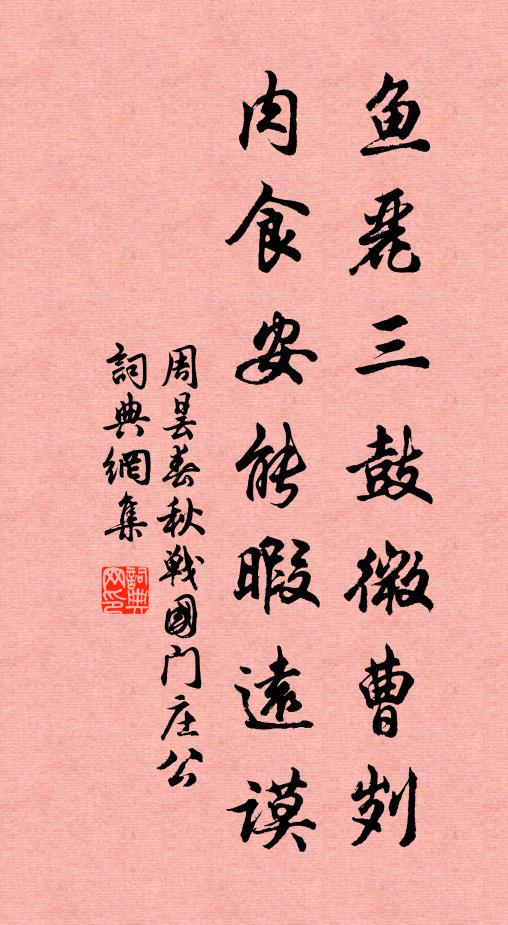 鱼丽三鼓微曹刿
肉食安能暇远谟
周昙春秋战国门庄公
词典网集
词典网印